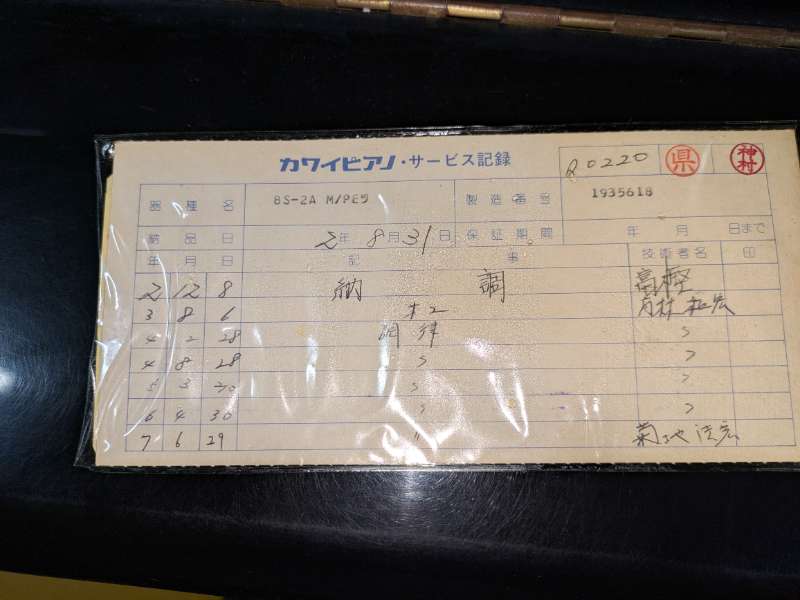 カワイピアノ・サービス記録 R0220 県 神村
器種名 BS-2A M/PEｸ 製造番号 1935618
納品日 2年8月31日 保証期間 年 月 日まで
年 月 日 記事 技術者名 印
2 12 8 納調
3 8 6 内村
4 2 28 調律 〃
4 8 28 〃 〃
5 3 20 〃 〃
6 4 30 〃 〃
7 6 29 〃 菊地